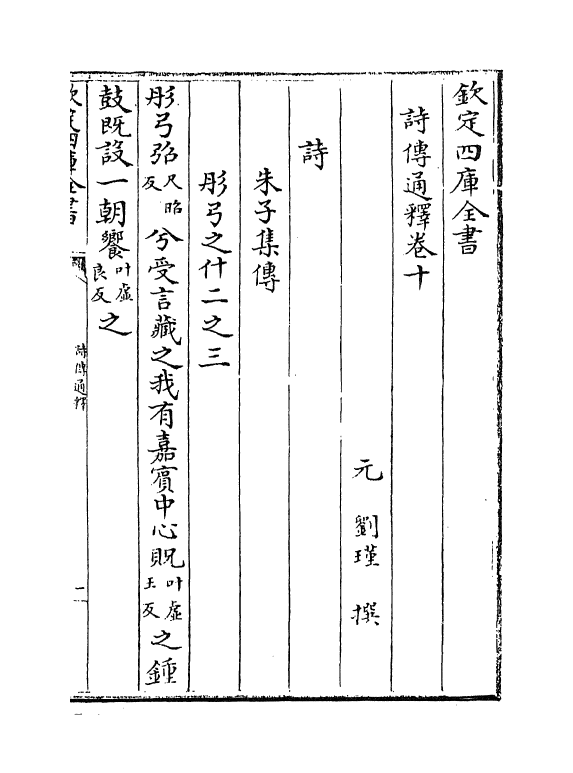 欽定四庫全書
詩傳通釋卷十
元 劉瑾 撰
詩
朱子集傳
彤弓之什二之三
彤弓弨尺昭反兮受言藏之我有嘉賓中心貺叶虛王反之鍾
鼓既設一朝饗叶虛良反之
欽定四庫全書
詩傳通釋
一